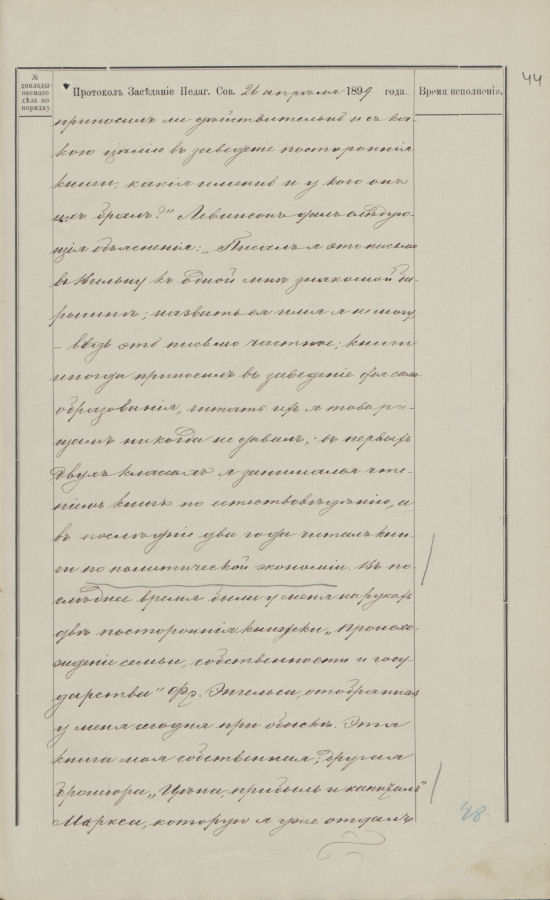 44
№ докладываемаго дѣла по порядку.
Протоколъ Засѣданіе Педаг. Сов. 26 апрѣля 1899 года.
Время исполненія.
приносилъ ли дѣйствительно и съ ка-
кою цѣлію въ заведеніе постороннія
книги, какія именно и у кого онъ
ихъ бралъ?" Левинсонъ далъ слѣдую-
щія объясненія: „Писалъ я это письмо
въ Вильну къ одной мнѣ знакомой ба-
рышнѣ; назвать ея имя я не могу
– вѣдь это письмо частное; книги
иногда приносилъ въ заведеніе для само-
образованія, читать ихъ я товари-
щамъ никогда не давалъ; въ первыхъ
двухъ классахъ я занимался чте-
ніемъ книгъ по естествовѣдѣнію, и
въ послѣдніе два года читалъ кни-
ги по политической экономіи. Въ по-
слѣднее время были у меня на рукахъ
двѣ постороннія книжки „Происхо-
жденіе семьи, собственности и госу-
дарства" Фр. Энгельса, отобранная
у меня сегодня при обыскѣ. Эта
книга моя собственная; другая
брошюра „Цѣна, прибыль и капиталъ"
Маркса, которую я уже отдалъ
48.